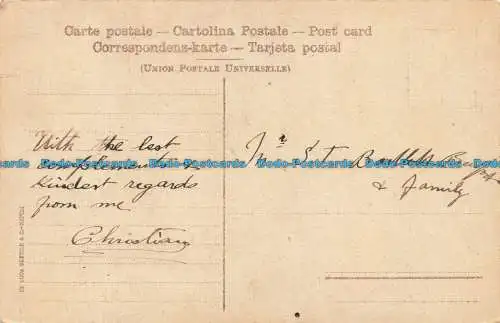 Carte postale — Cartolina Postale — Post card
Correspondenz-karte — Tarjeta postal
(UNION POSTALE UNIVERSELLE)
With the best
complements &
kindest regards
from me
Christian
& Family
Postcards Postcards Postcards Postcards Postcards Postcards Postcards